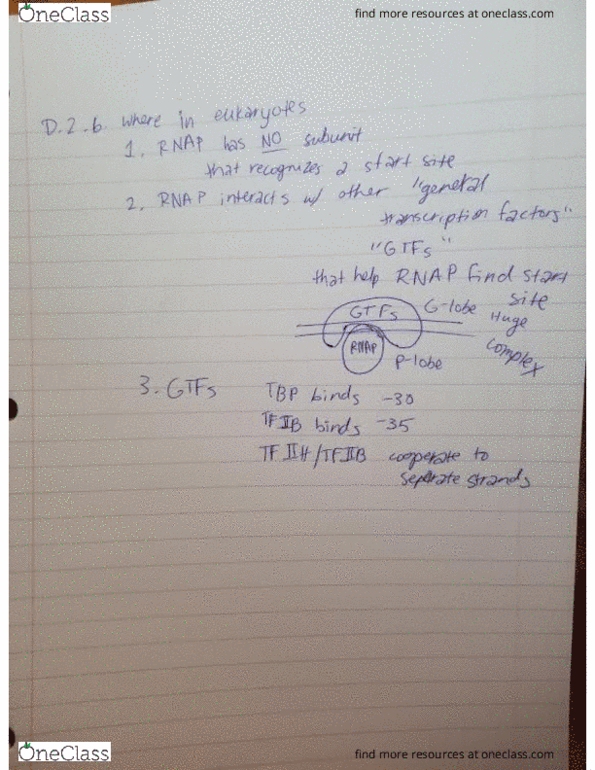 OneClass
find more resources at oneclass.com
D.2.b where in eukaryotes
1. RNAP has NO subunit
that recognizes a start site
2. RNAP interacts w/ other "general
transcription factors"
"GTFs"
that help RNAP find start
site
GTFs G-lobe Huge
RNAP P-lobe complex
3. GTFs TBP binds -30
TFIIB binds -35
TFIIH/TFIIB cooperate to
seperate strands
OneClass
find more resources at oneclass.com